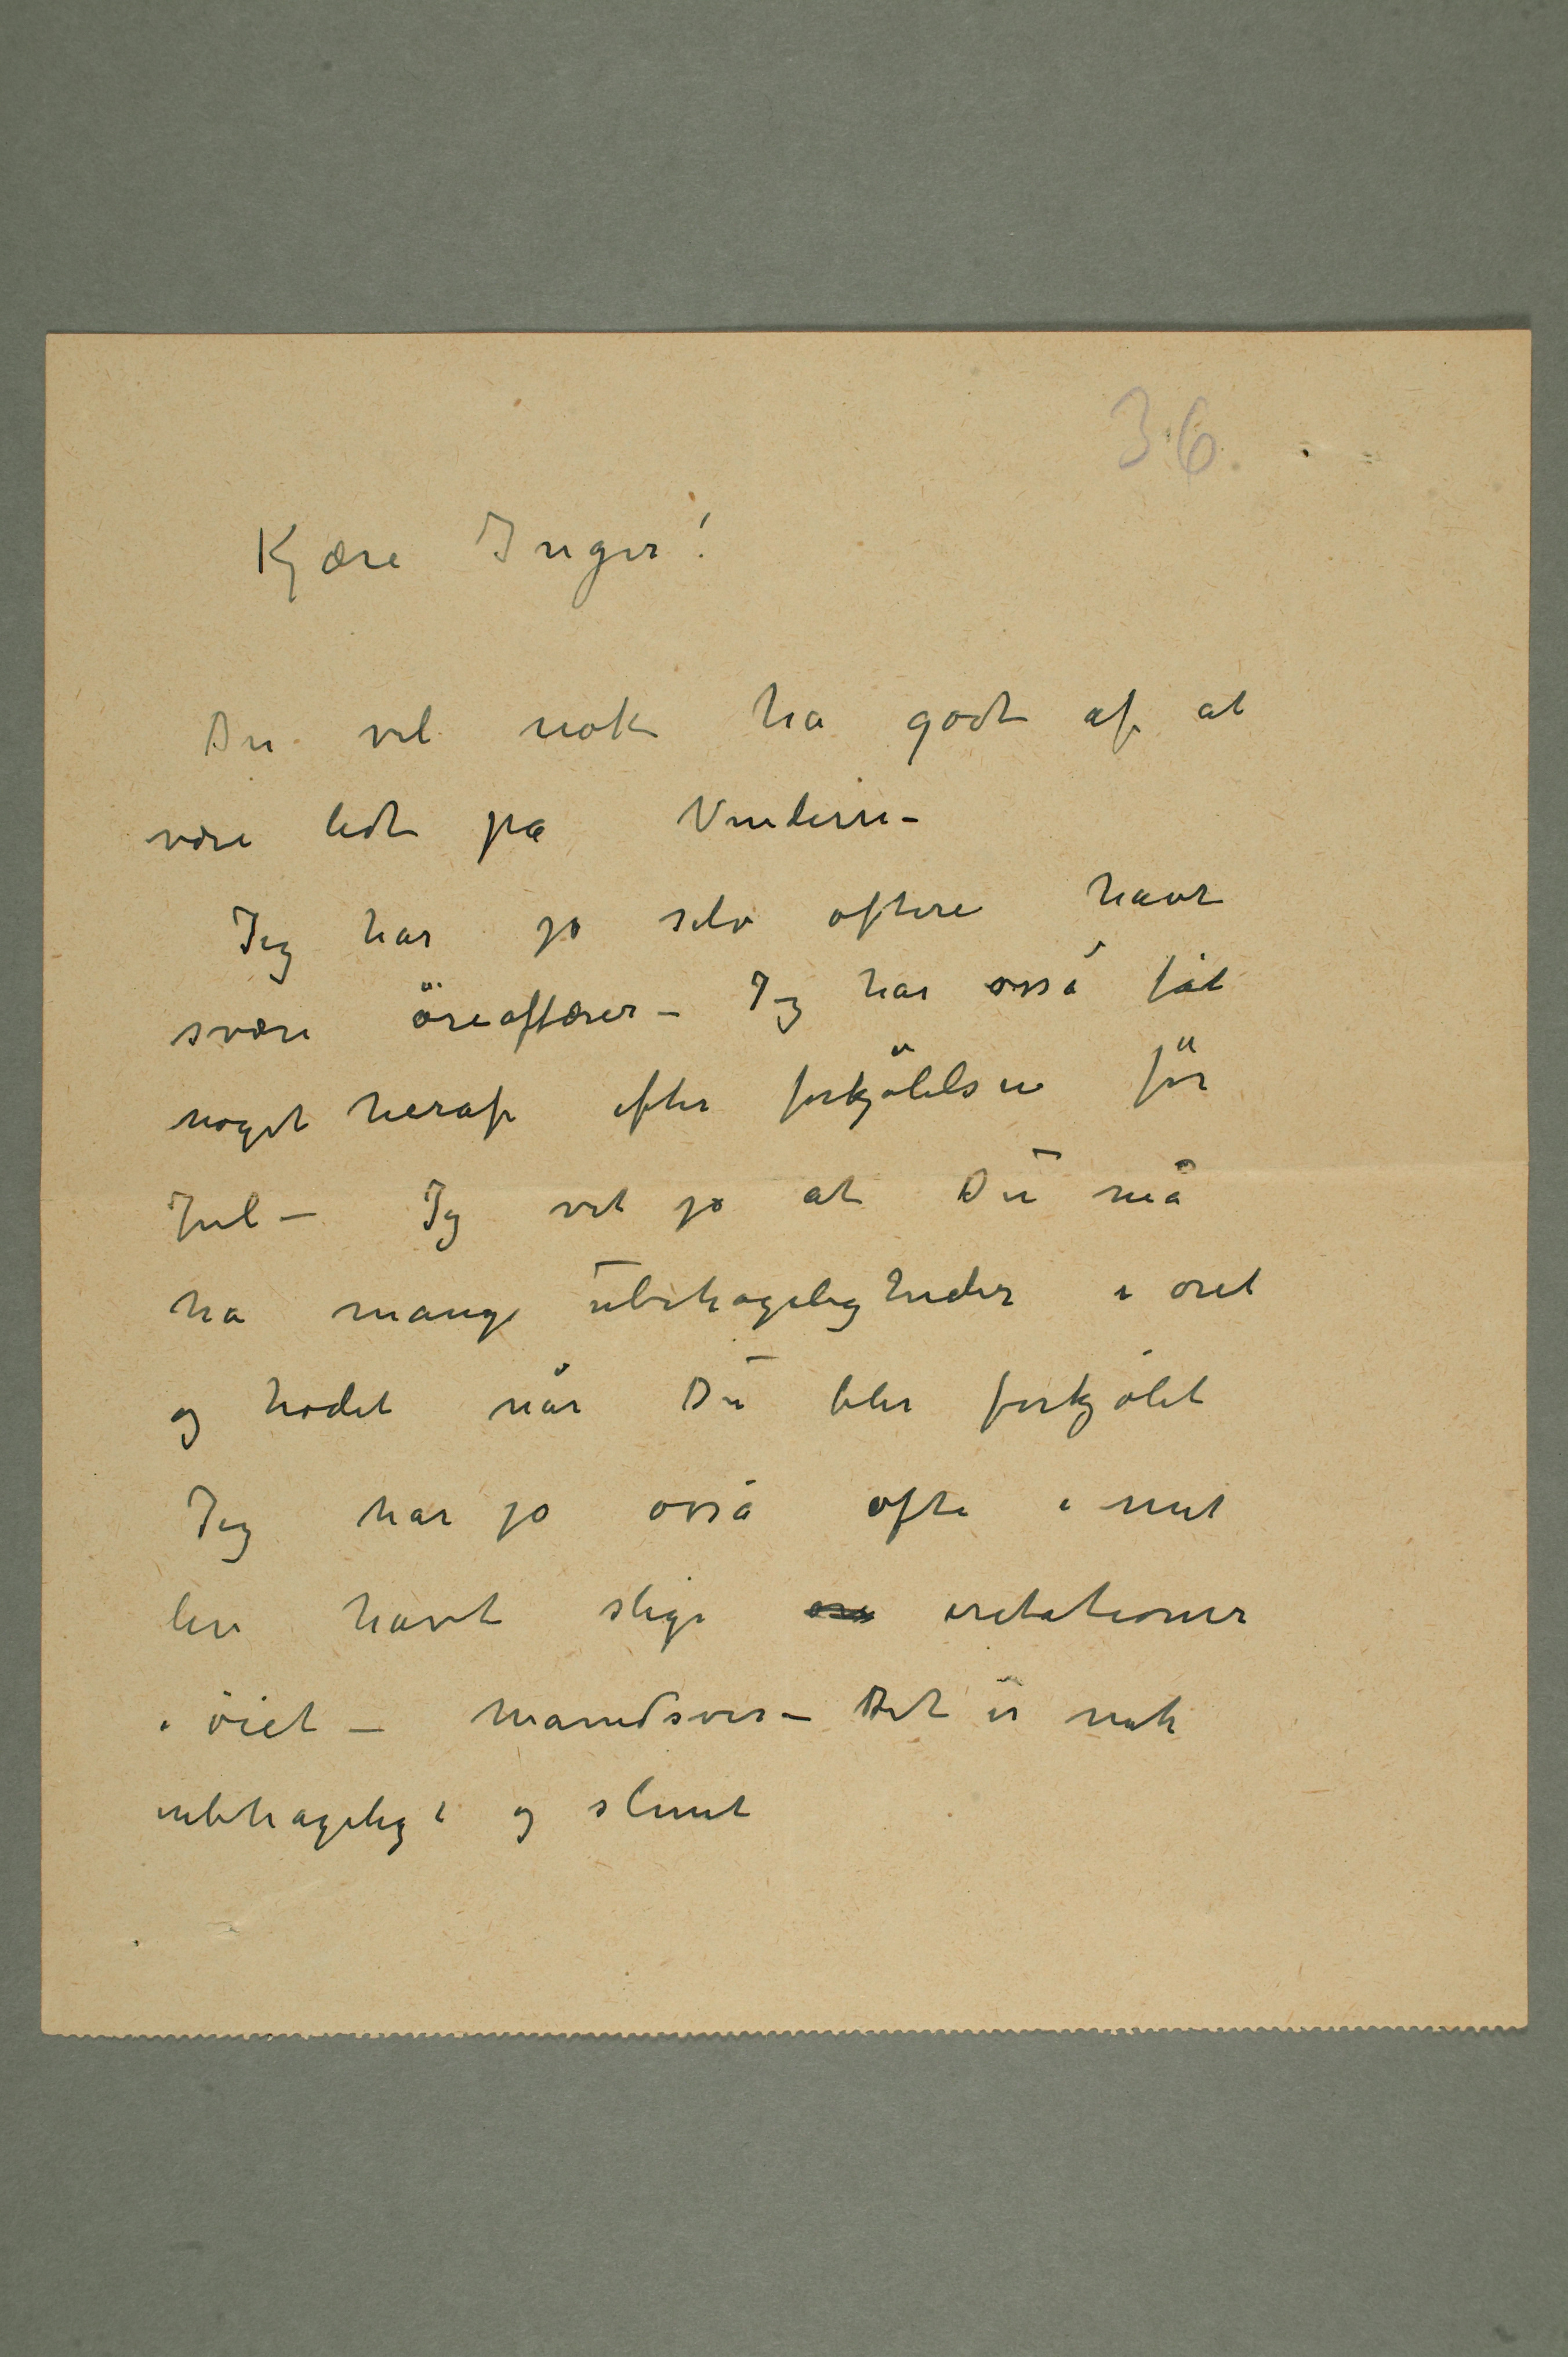 36.
Kjære Inger!
Du vil nok ha godt af at
være lidt på Vinderen–
Jeg har jo selv oftere havt
svære öreaffærer – Jeg har også fåt
noget heraf efter forkjölelsen för
Jul – Jeg vet jo at Du må
ha mange ubehageligheder i øret
og hodet når Du blir forkjølet
Jeg har jo også ofte i mit
liv havt slige iritationer
i öiet – månedsvis – Det er nok
ubehagelig t og slemt